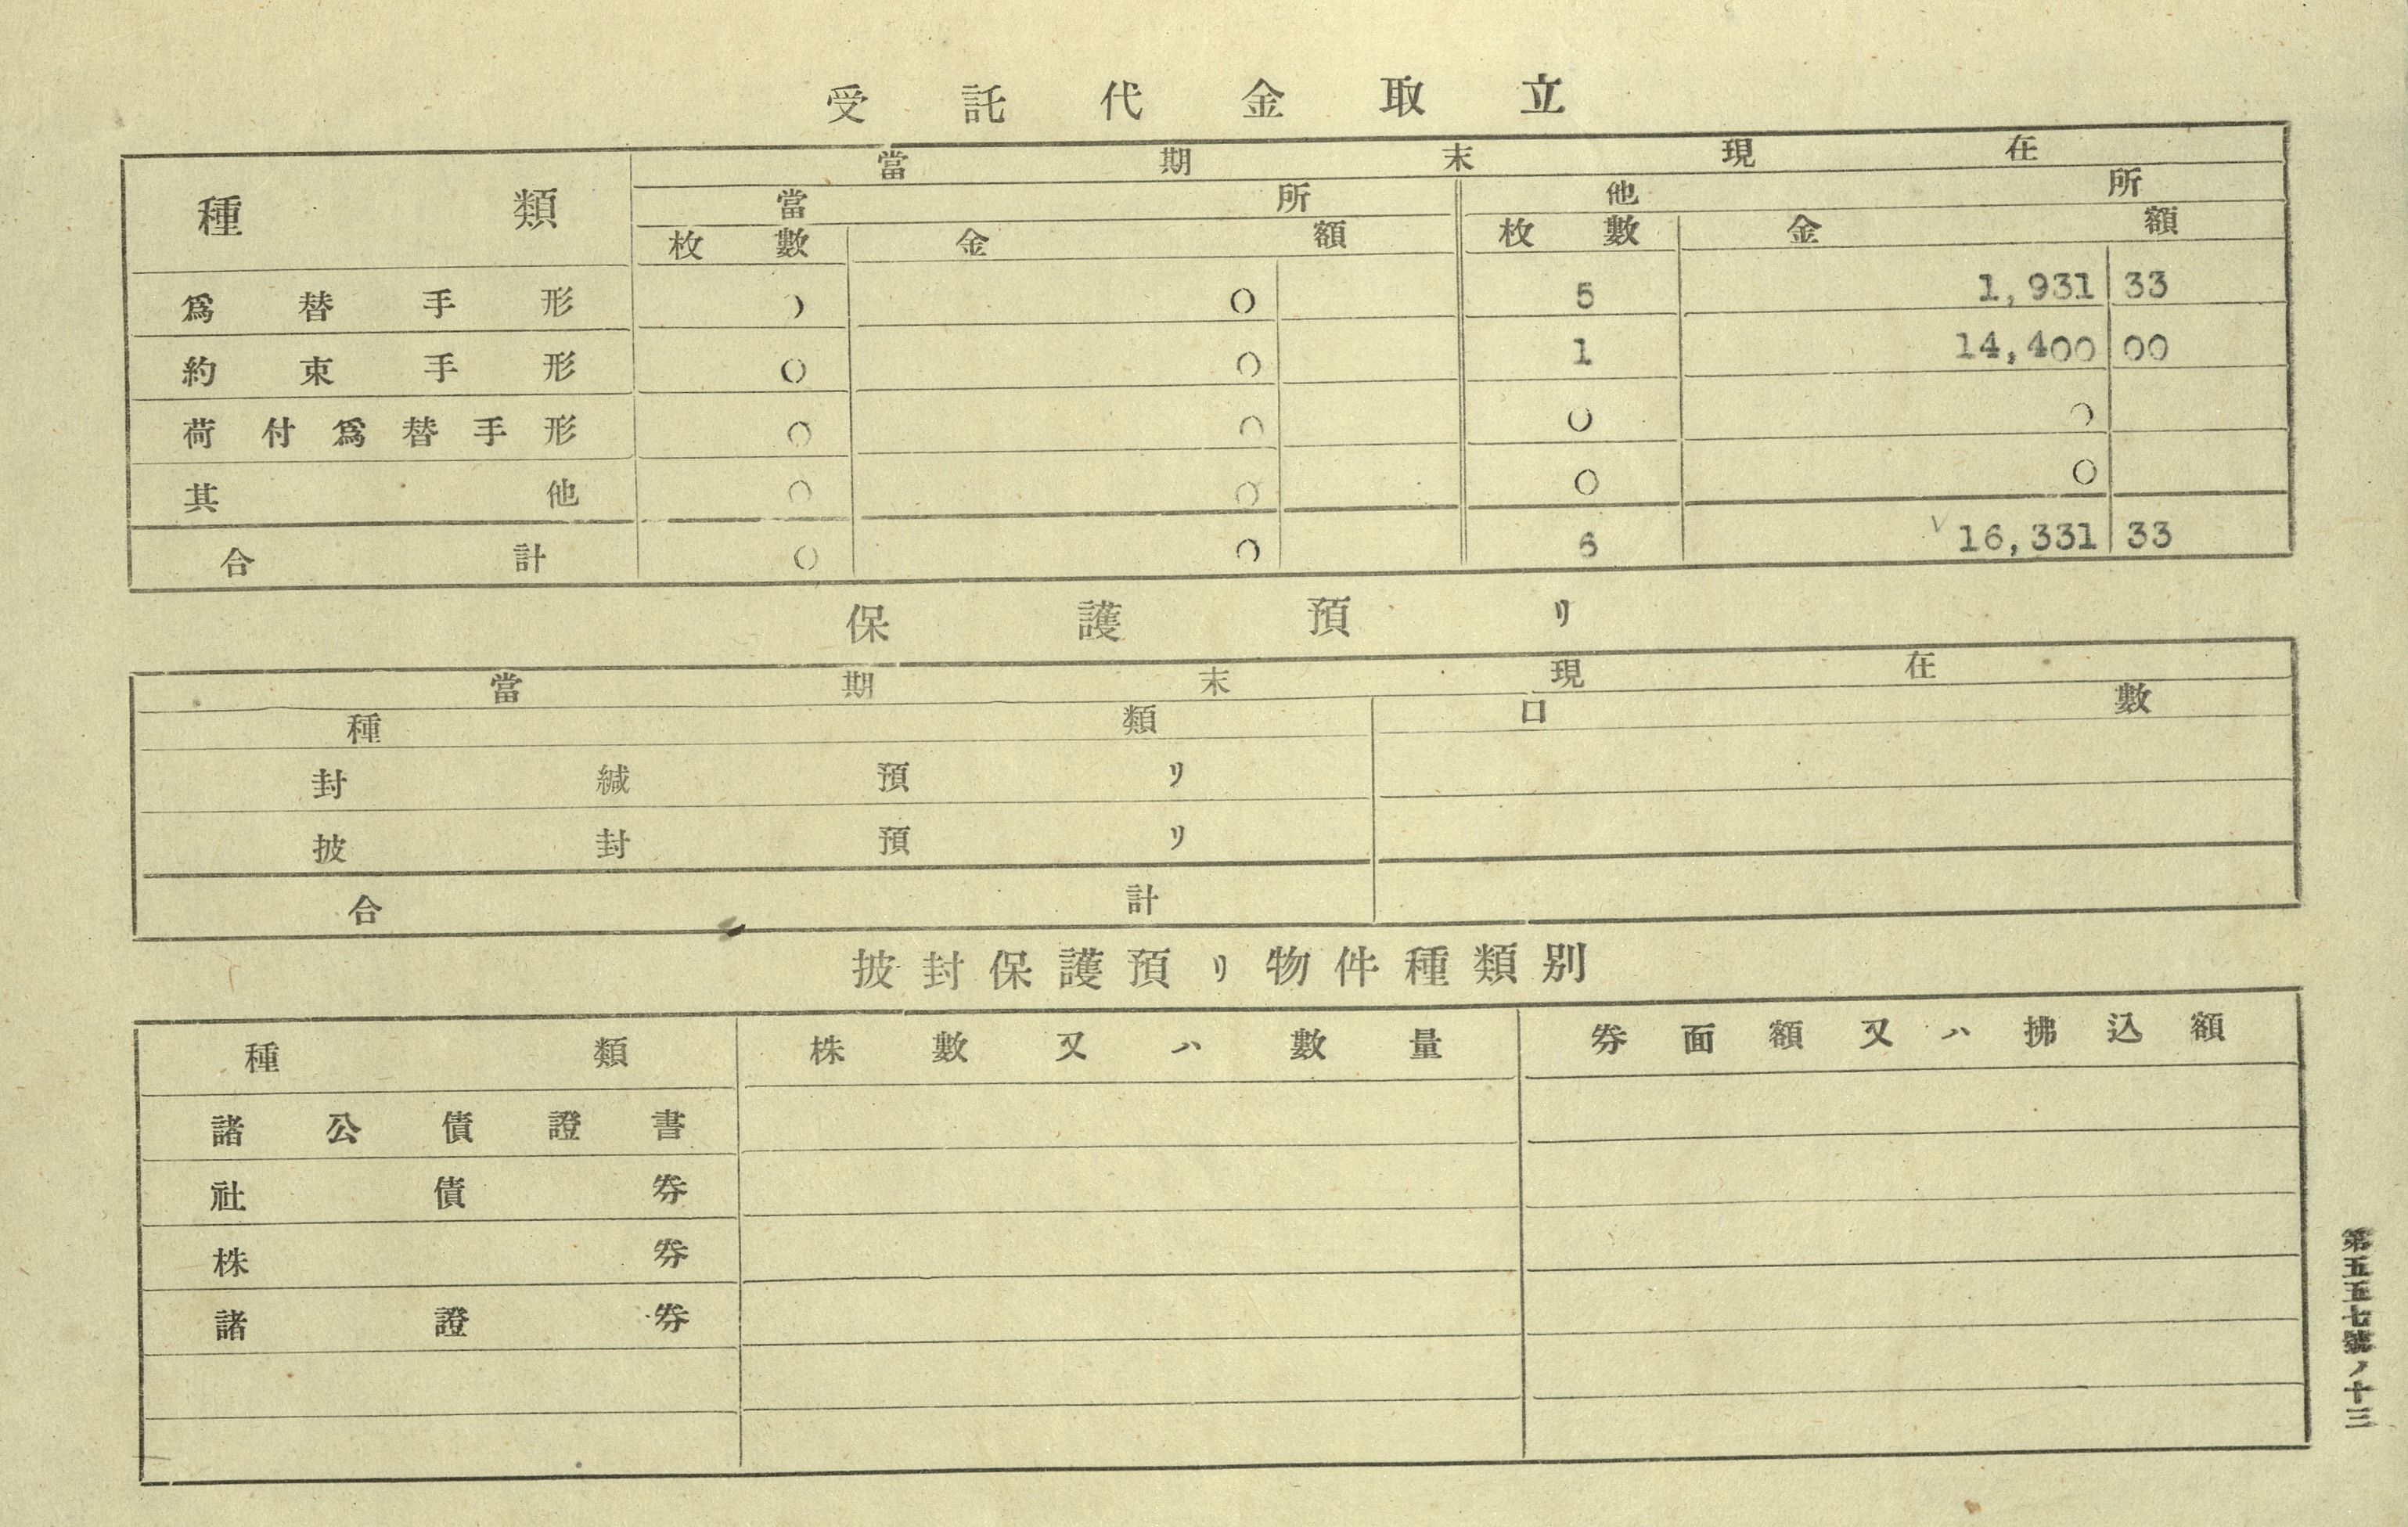 受託代金取立
種類 當期末現在
當所 他所
枚數 金額 枚數 金額
爲替手形 ○ ○ 5 1,931 33
約束手形 ○ ○ 1 14,400 00
荷付爲替手形 ○ ○ ○ ○
其他 ○ ○ ○ ○
合計 ○ ○ 6 16,331 33
保護預リ
當期末現在
種類 口數
封緘預リ
披封預リ
合計
披封保護預リ物件種類別
種類 株數又ハ數量 券面額又ハ拂込額
諸公債證書
社債券
株券
諸證券
第五五七號ノ十三